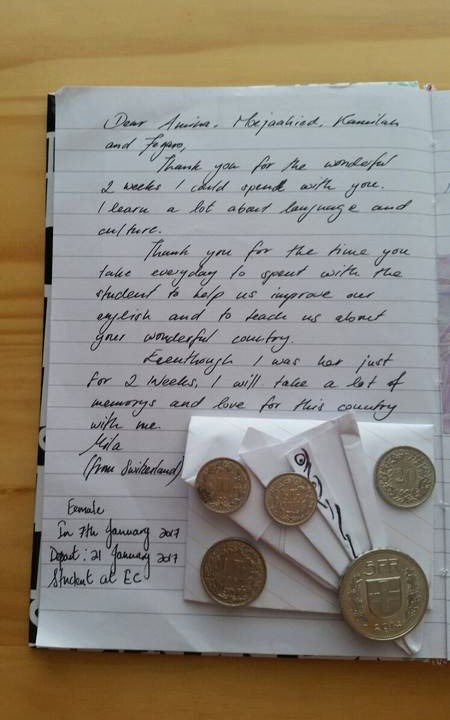 Dear Amina, Mojaahied, Kamilah
and
Thank you for the wonderful
2 weeks I could spend with you.
I learn a lot about language and
culture.
Thank you for the time you
take everyday to spent with the
student to help us improve our
english and to teach us about
your wonderful country.
Eventhough I was her just
for 2 weeks, I will take a lot of
memorys and love for this country
with me.
Mila
(from Switzerland)
Female
In 7th January 2017
Depart: 21 January 2017
Student at EC
20
5 FR